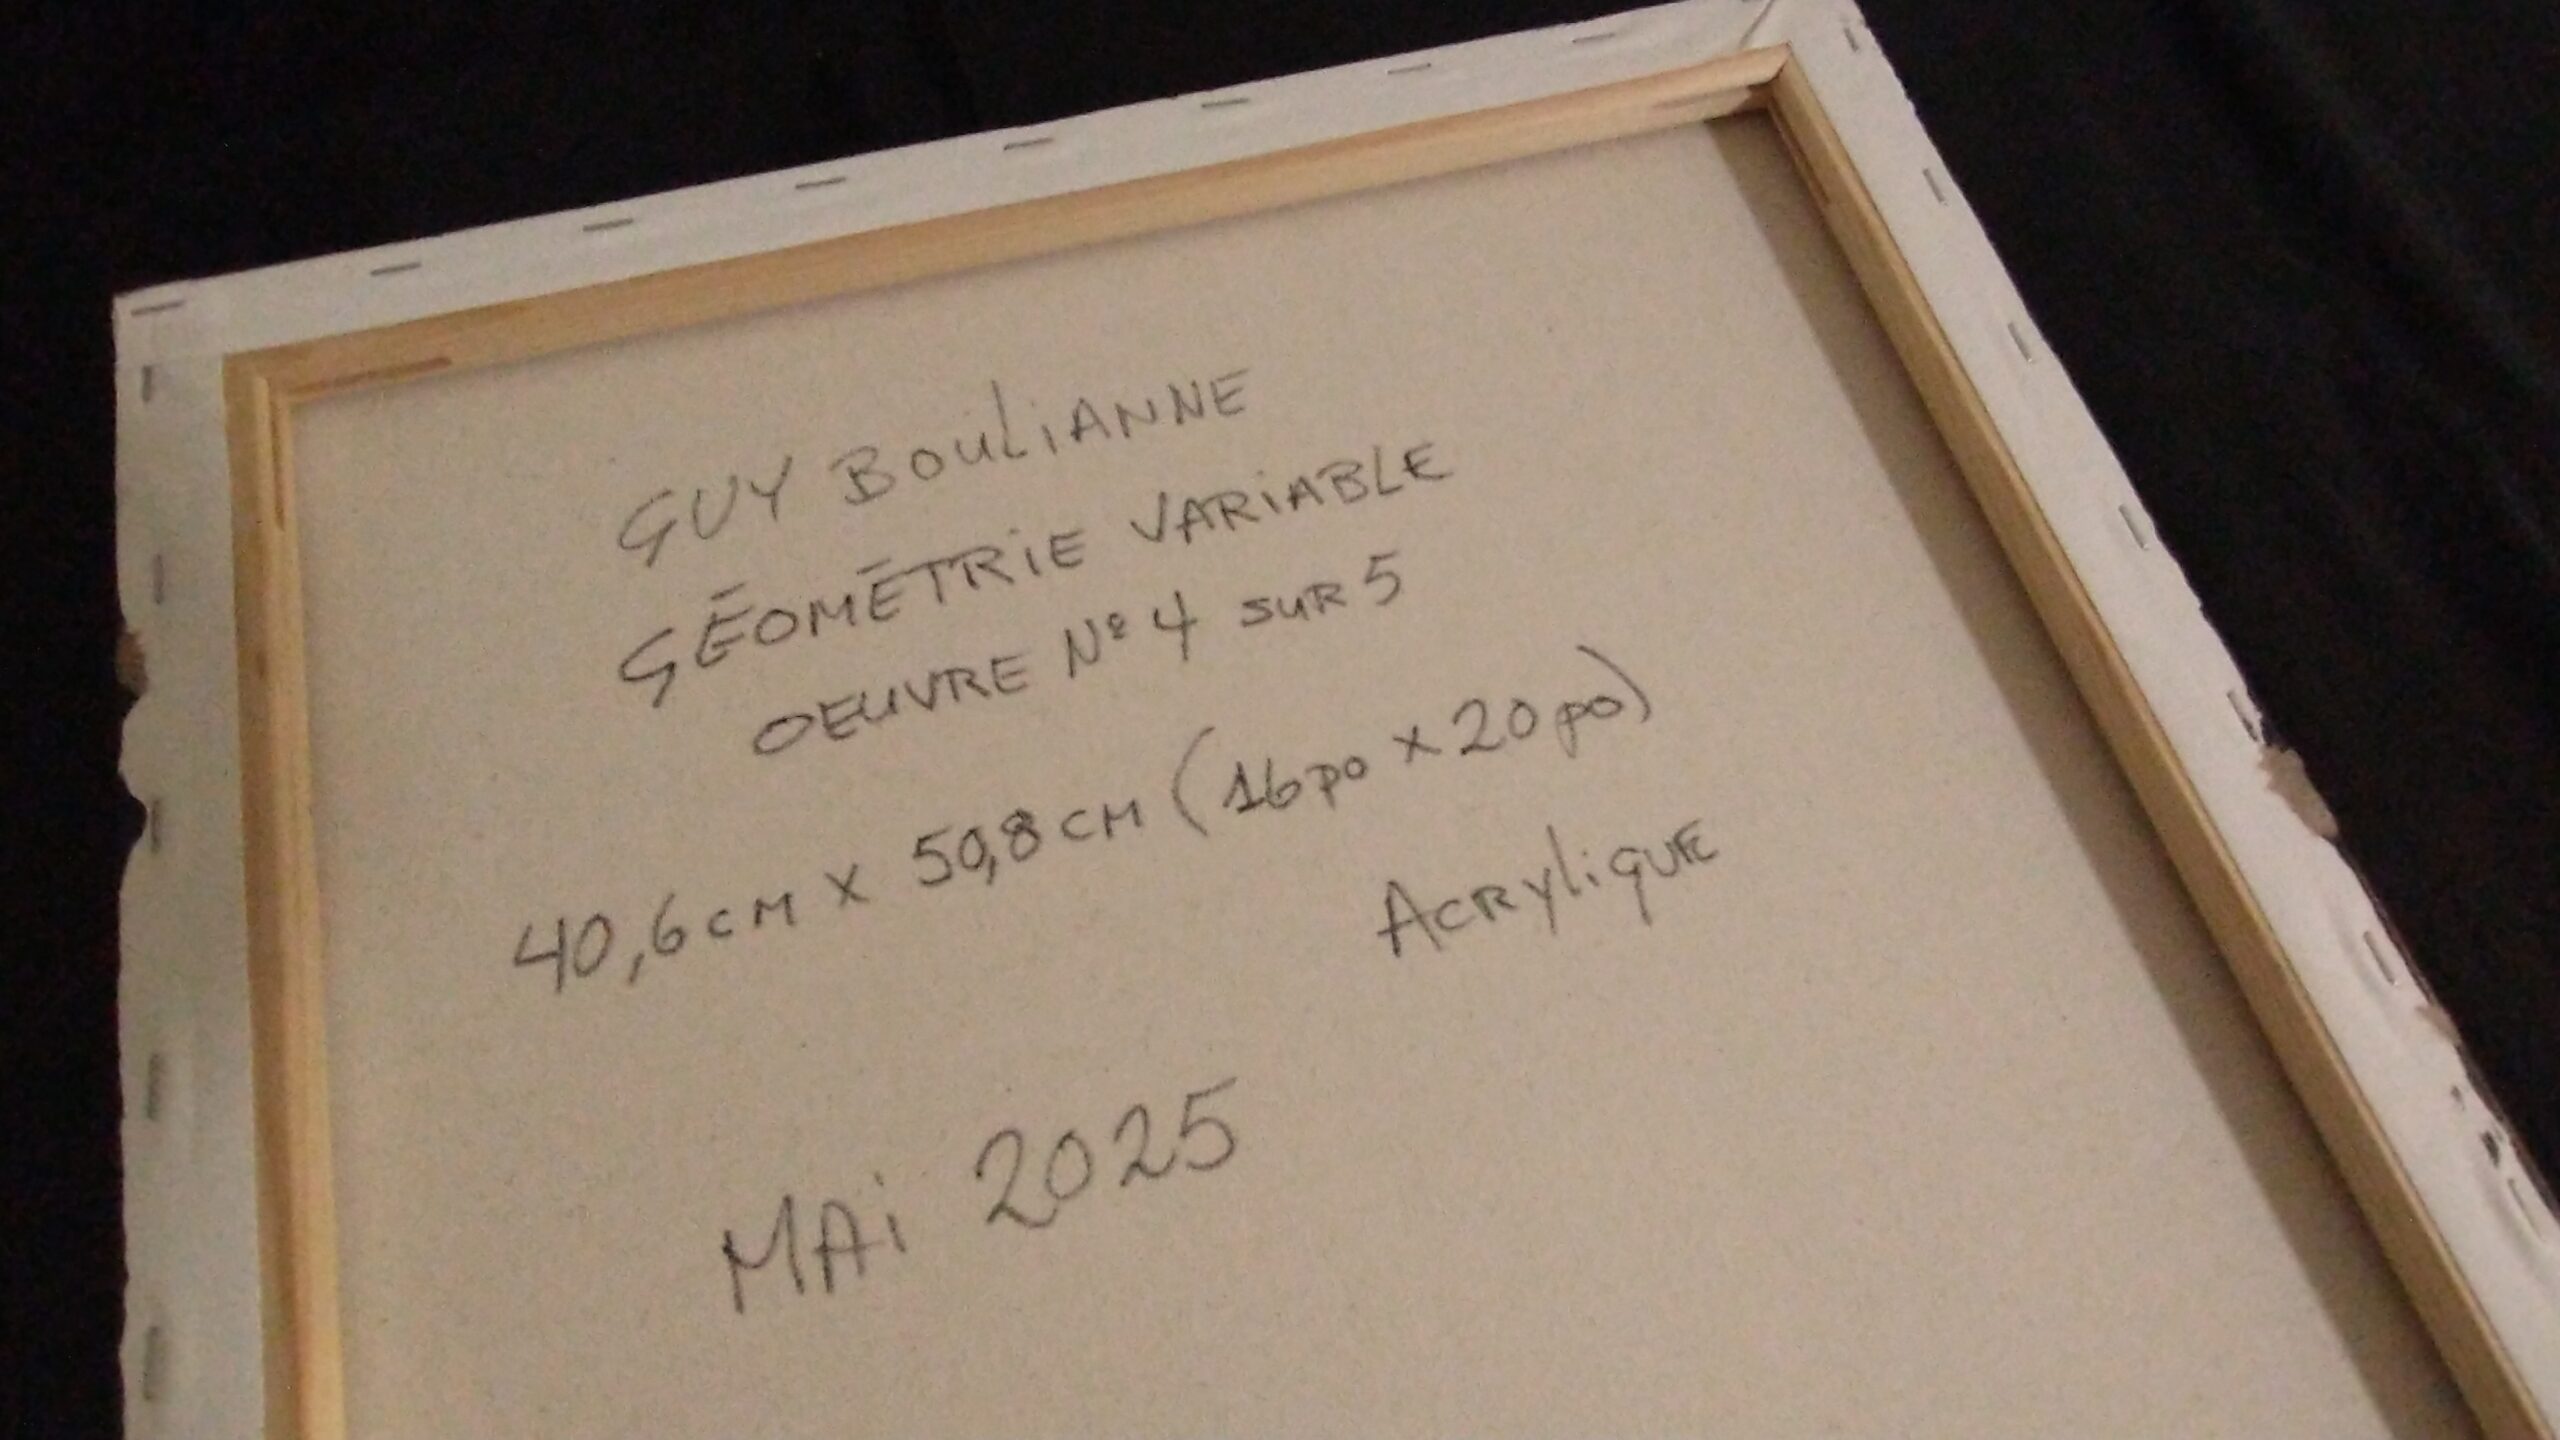 GUY BOULiANNE
GÉOMÉTRiE VARiABLE
OEUVRE Nº 4 SUR 5
40,6 CM X 50,8 CM (16 po X 20 po)
ACRYliQUE
MAi 2025